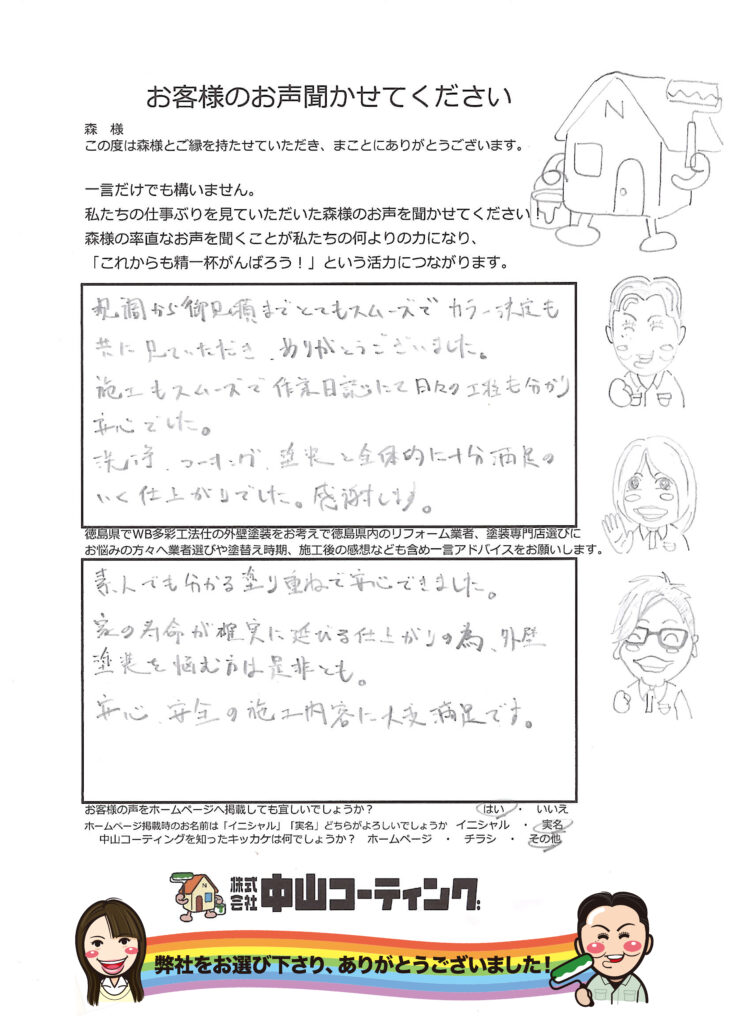 お客様のお声聞かせてください
N
森 様
この度は森様とご縁を持たせていただき、まことにありがとうございます。
一言だけでも構いません。
私たちの仕事ぶりを見ていただいた森様のお声を聞かせてください!
森様の率直なお声を聞くことが私たちの何よりの力になり、
「これからも精一杯がんばろう!」という活力につながります。
現調から御見積までとてもスムーズで カラー決定も
共に見ていただき、ありがとうございました。
施工もスムーズで作業日誌にて日々の工程も分かり
安心でした。
洗浄、コーキング、塗装と全体的に十分満足の
いく仕上がりでした。感謝します。
徳島県でWB多彩工法仕の外壁塗装をお考えで徳島県内のリフォーム業者、塗装専門店選びに
お悩みの方々へ業者選びや塗替え時期、施工後の感想なども含め一言アドバイスをお願いします。
素人でも分かる塗り重ねで安心できました。
家の寿命が確実に延びる仕上がりの為、外壁
塗装を悩む方は是非とも。
安心、安全の施工内容に大変満足です。
お客様の声をホームページへ掲載しても宜しいでしょうか? はい ・ いいえ
ホームページ掲載時のお名前は「イニシャル」「実名」どちらがよろしいでしょうか イニシャル ・ 実名
中山コーティングを知ったキッカケは何でしょうか? ホームページ ・ チラシ ・ その他
N 株式会社 中山コーティング
弊社をお選び下さり、ありがとうございました!